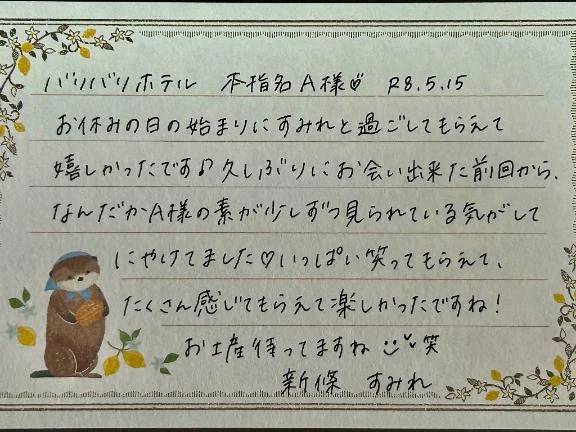 バリバリホテル 本指名A様♡ R8.5.15
お休みの日の始まりにすみれと過ごしてもらえて
嬉しかったです♪久しぶりにお会い出来た前回から、
なんだかA様の素が少しずつ見られている気がして
にやけてました♡いっぱい笑ってもらえて、
たくさん感じてもらえて楽しかったですね!
お土産待ってますね 笑
新條 すみれ